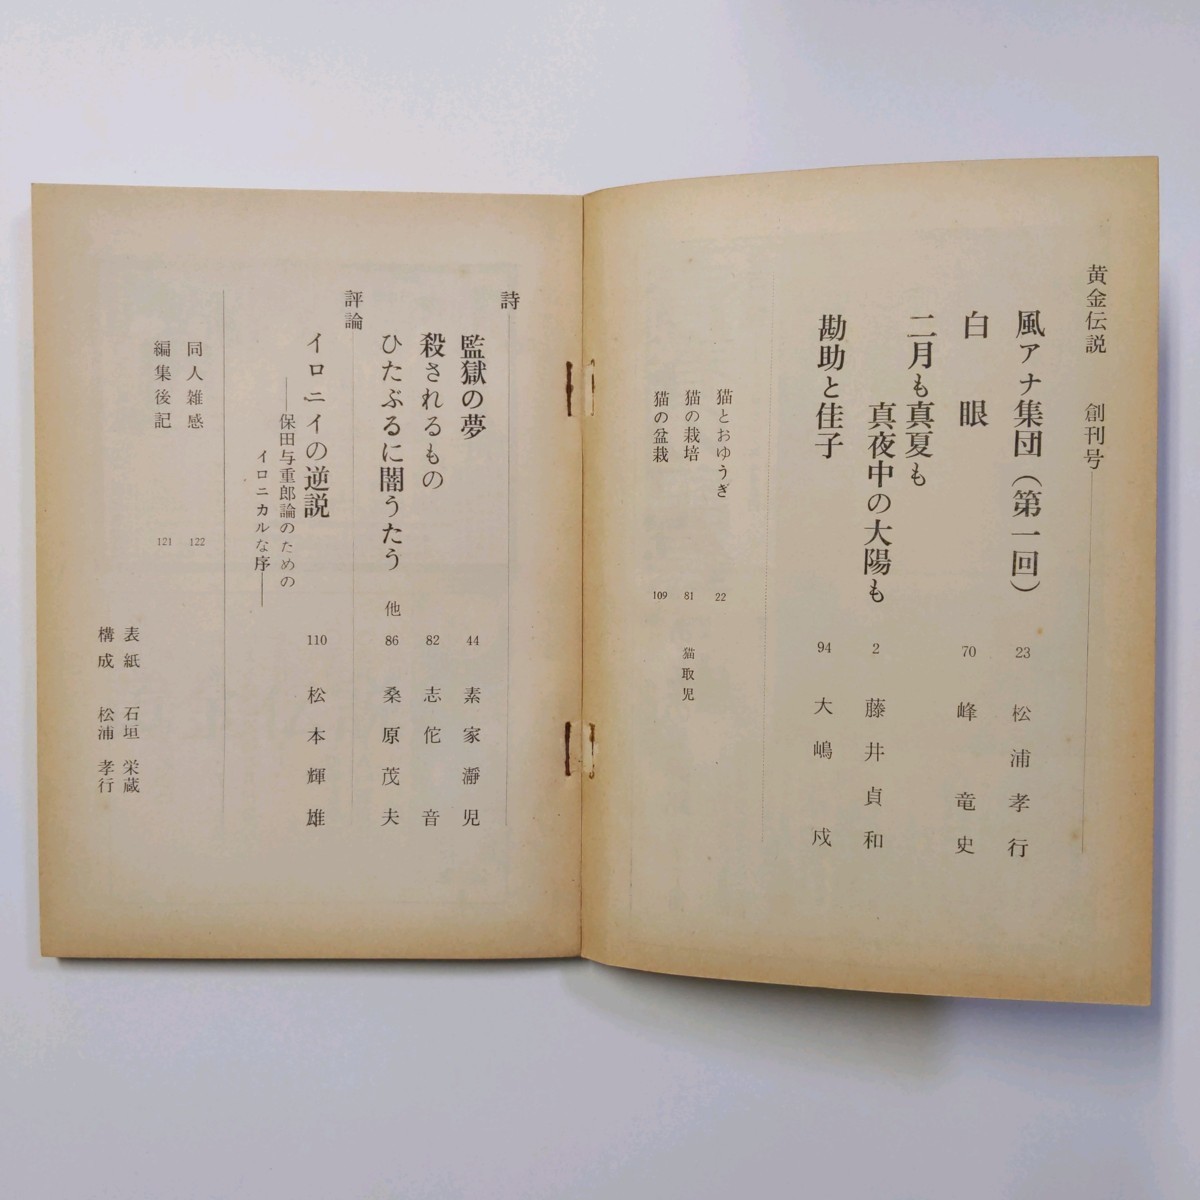 黄金伝説 創刊号
風アナ集団(第一回) 23 松浦孝行
白眼 70 峰竜史
二月も真夏も
真夜中の大陽も 2 藤井貞和
勘助と佳子 94 大嶋成
猫とおゆうぎ 22
猫の栽培 81 猫取児
猫の盆栽 109
詩
監獄の夢 44 素家瀞児
殺されるもの 82 志佗音
ひたぶるに闇うたう 他 86 桑原茂夫
評論
イロニイの逆説 110 松本輝雄
――保田与重郎論のための
イロニカルな序――
同人雑感 122
編集後記 121
表紙 石垣栄蔵
構成 松浦孝行